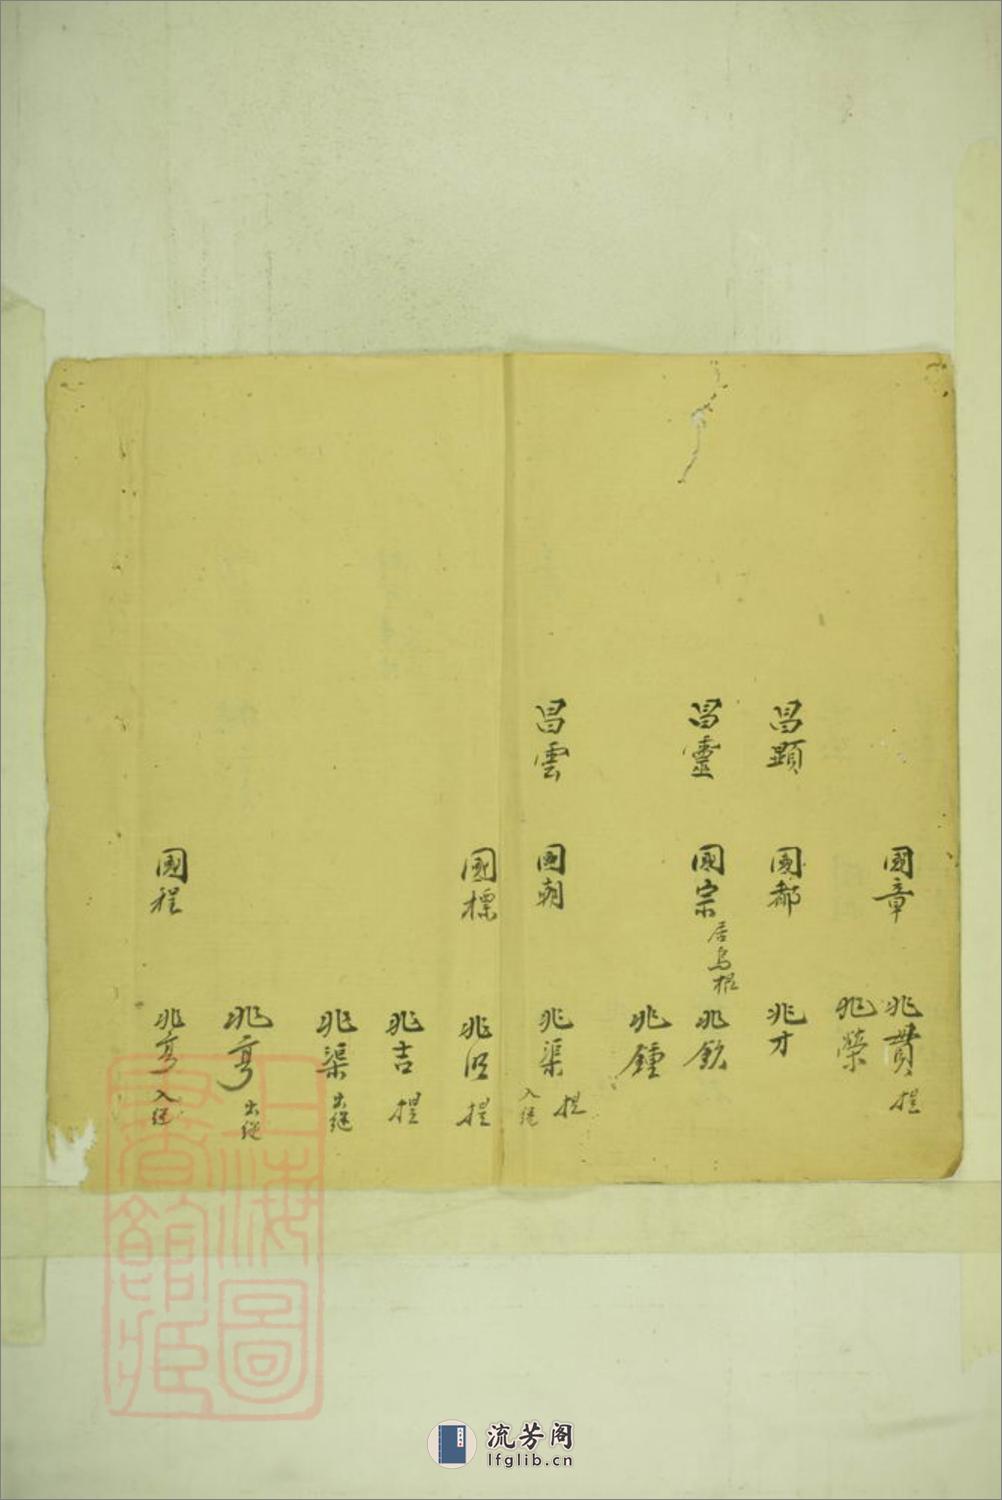 國章
兆貫 提
兆榮
昌顕
國都
兆才
昌靈
國宗 居烏根
兆欽
兆鍾
昌雲
國朝
兆渠 提
入繼
國標
兆沼 提
兆吉 提
兆渠 出繼
兆亨 出繼
國程
兆亨 入繼
上海圖
書館藏
流芳阁
lfglib.cn